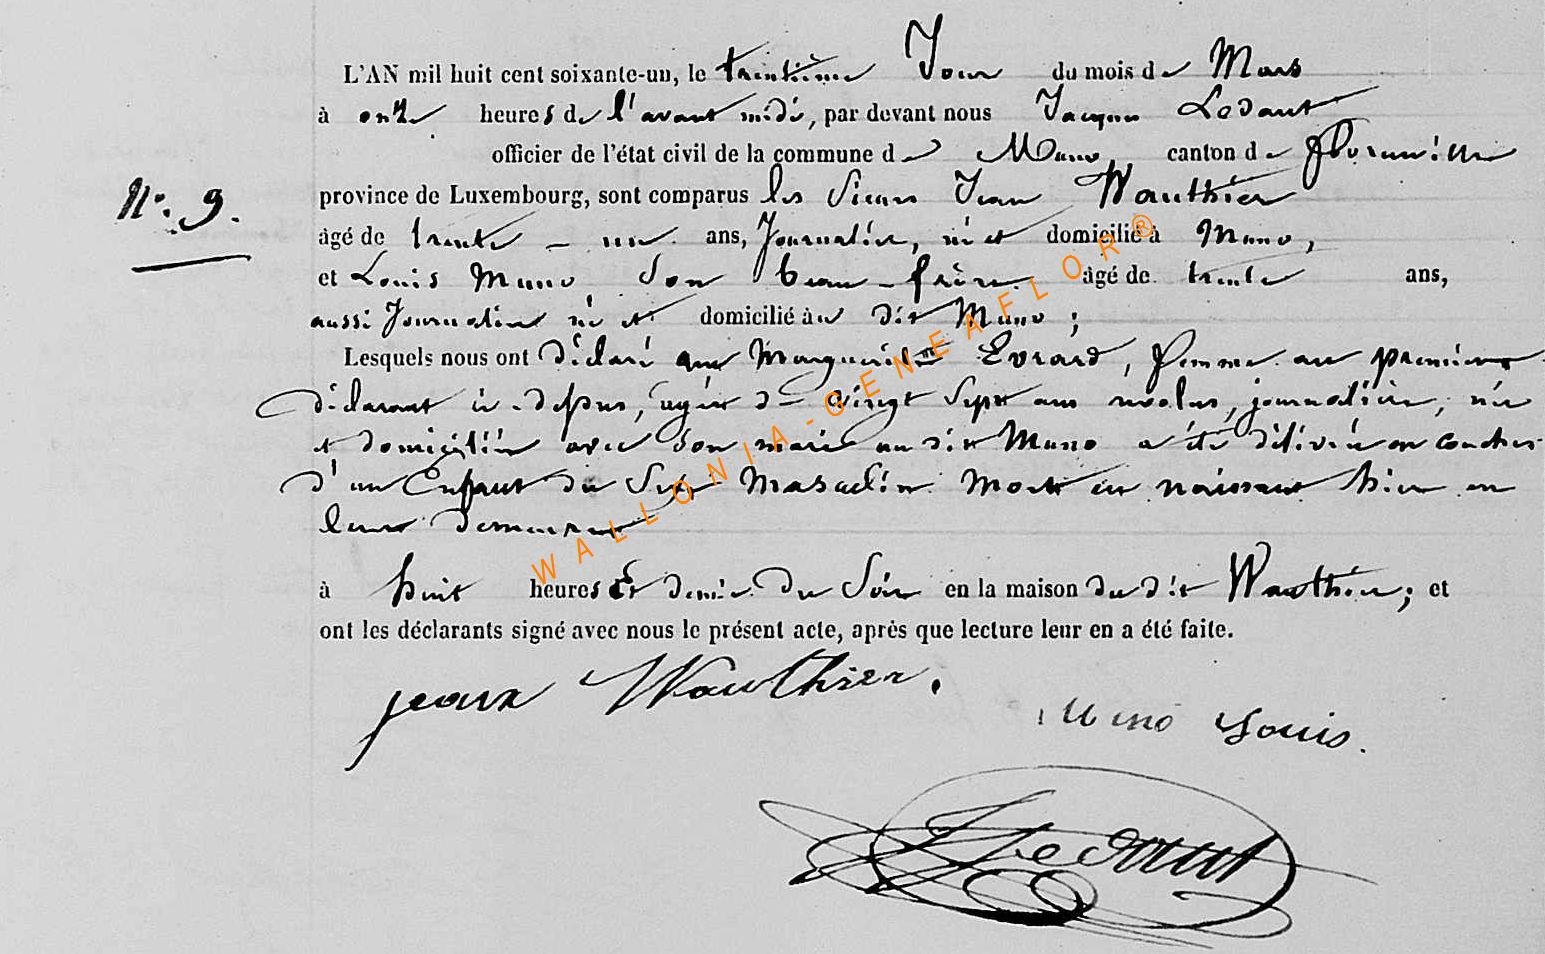 L'AN mil huit cent soixante-un, le trentième Jour du mois de Mars
à onze heures de l'avant midi, par devant nous Jacques Ledaut
officier de l'état civil de la commune de Muno, canton de Florenville
N.° 9.
province de Luxembourg, sont comparus les Sieurs Jean Wauthier
âgé de trente - un ans, Journalier, né et domicilié à Muno,
et Louis Muno son beau-frère âgé de trente ans,
aussi Journalier né et domicilié au dit Muno ;
Lesquels nous ont déclaré que Marguerite Evrard, femme au premier
déclarant ci-dessus, agée de vingt sept ans révolus, journalière, née
et domiciliée avec son mari au dit Muno a été délivrée en couches
d'un Enfant du Sexe Masculin mort en naissant hier en
leur demeure
à huit heures Et demie du Soir en la maison du dit Wauthier ; et
ont les déclarants signé avec nous le présent acte, après que lecture leur en a été faite.
jean Wauthier.
Muno Louis.
Ledaut
WALLONIA-GENEAFLOR®